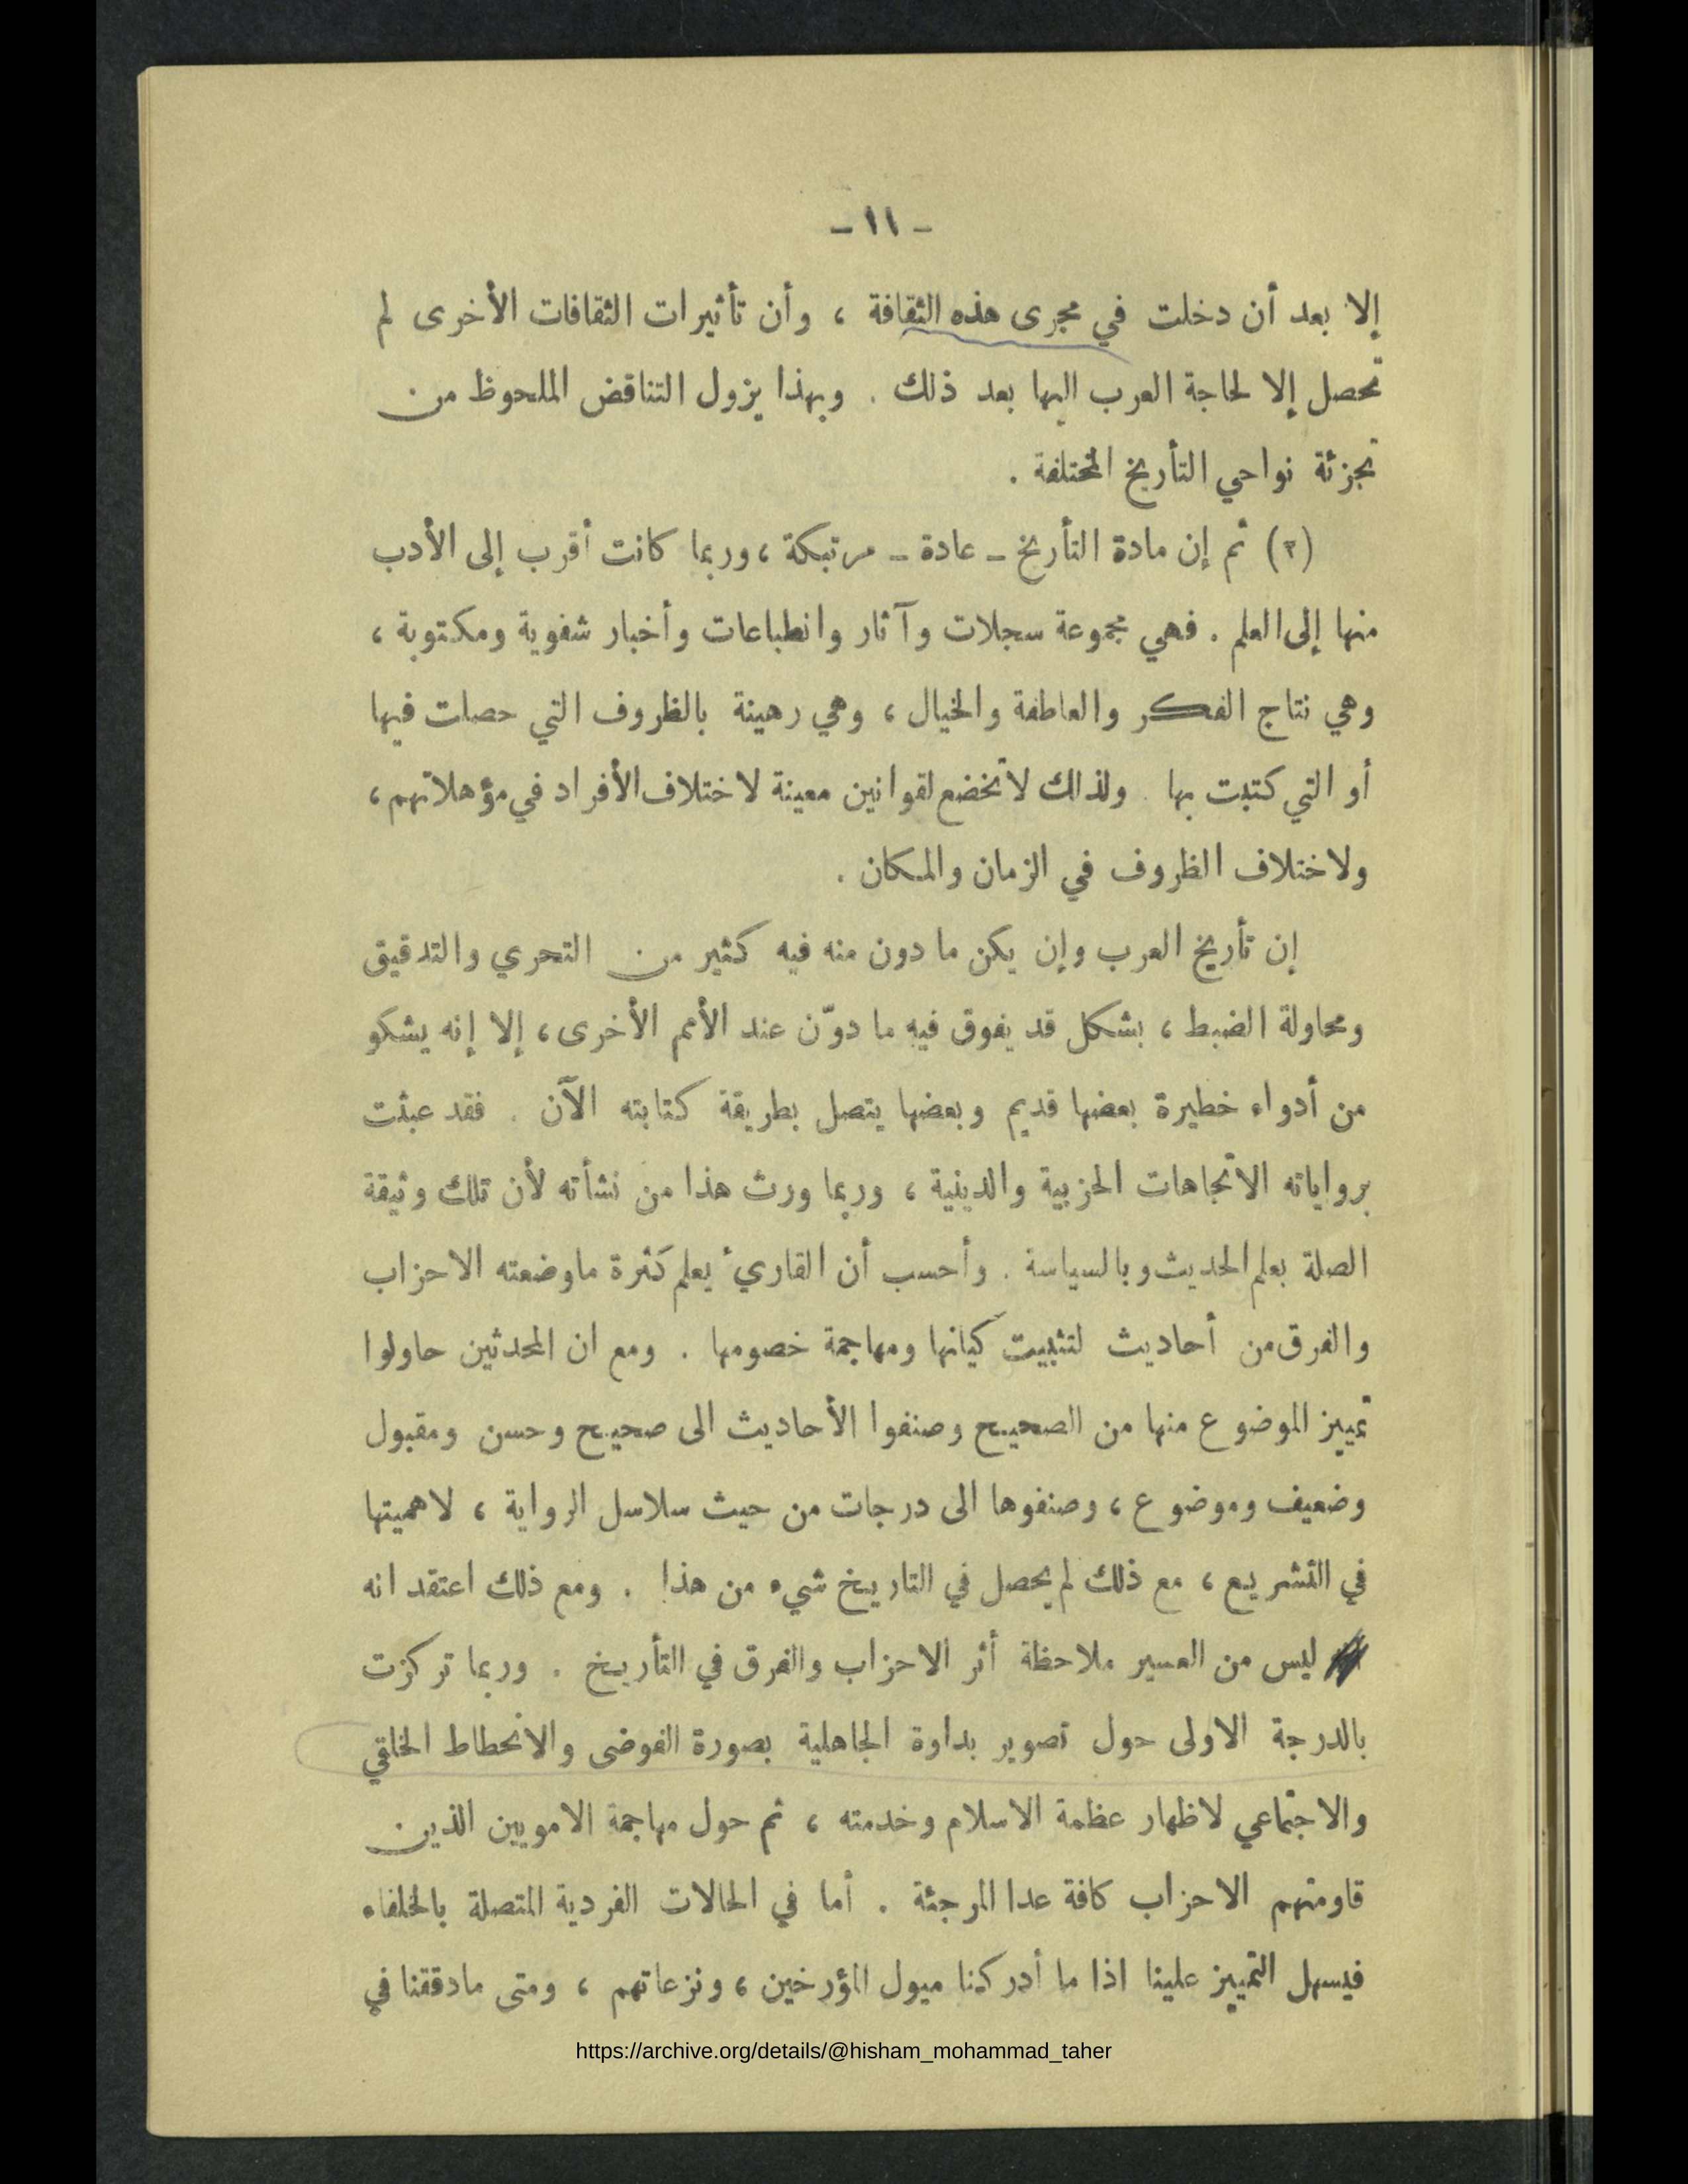 - ١١ -
إلا بعد أن دخلت في مجرى هذه الثقافة ، وأن تأثيرات الثقافات الأخرى لم
تحصل إلا لحاجة العرب اليها بعد ذلك . وبهذا يزول التناقض الملحوظ من
تجزئة نواحي التأريخ المختلفة .
(٣) ثم إن مادة التأريخ - عادة - مرتبكة ، وربما كانت أقرب إلى الأدب
منها إلى العلم . فهي مجموعة سجلات وآثار وانطباعات وأخبار شفوية ومكتوبة ،
وهي نتاج الفكر والعاطفة والخيال ، وهي رهينة بالظروف التي حصلت فيها
أو التي كتبت بها . ولذلك لا تخضع لقوانين معينة لاختلاف الأفراد في مؤهلاتهم ،
ولاختلاف الظروف في الزمان والمكان .
إن تأريخ العرب وإن يكن ما دون منه فيه كثير من التحري والتدقيق
ومحاولة الضبط ، بشكل قد يفوق فيه ما دوّن عند الأمم الأخرى ، إلا إنه يشكو
من أدواء خطيرة بعضها قديم وبعضها يتصل بطريقة كتابته الآن . فقد عبثت
برواياته الاتجاهات الحزبية والدينية ، وربما ورث هذا من نشأته لأن تلك وثيقة
الصلة بعلم الحديث وبالسياسة . وأحسب أن القاريء يعلم كثرة ما وضعته الاحزاب
والفرق من أحاديث لتثبيت كيانها ومهاجمة خصومها . ومع ان المحدثين حاولوا
تمييز الموضوع منها من الصحيح وصنفوا الأحاديث الى صحيح وحسن ومقبول
وضعيف وموضوع ، وصنفوها الى درجات من حيث سلاسل الرواية ، لاهميتها
في التشريع ، مع ذلك لم يحصل في التاريخ شيء من هذا . ومع ذلك اعتقد انه
ليس من العسير ملاحظة أثر الاحزاب والفرق في التأريخ . وربما تركزت
بالدرجة الاولى حول تصوير بداوة الجاهلية بصورة الفوضى والانحطاط الخلقي
والاجتماعي لاظهار عظمة الاسلام وخدمته ، ثم حول مهاجمة الامويين الذين
قاومتهم الاحزاب كافة عدا المرجئة . أما في الحالات الفردية المتصلة بالخلفاء
فيسهل التمييز علينا اذا ما أدركنا ميول المؤرخين ، ونزعاتهم ، ومتى مادققنا في
https://archive.org/details/@hisham_mohammad_taher